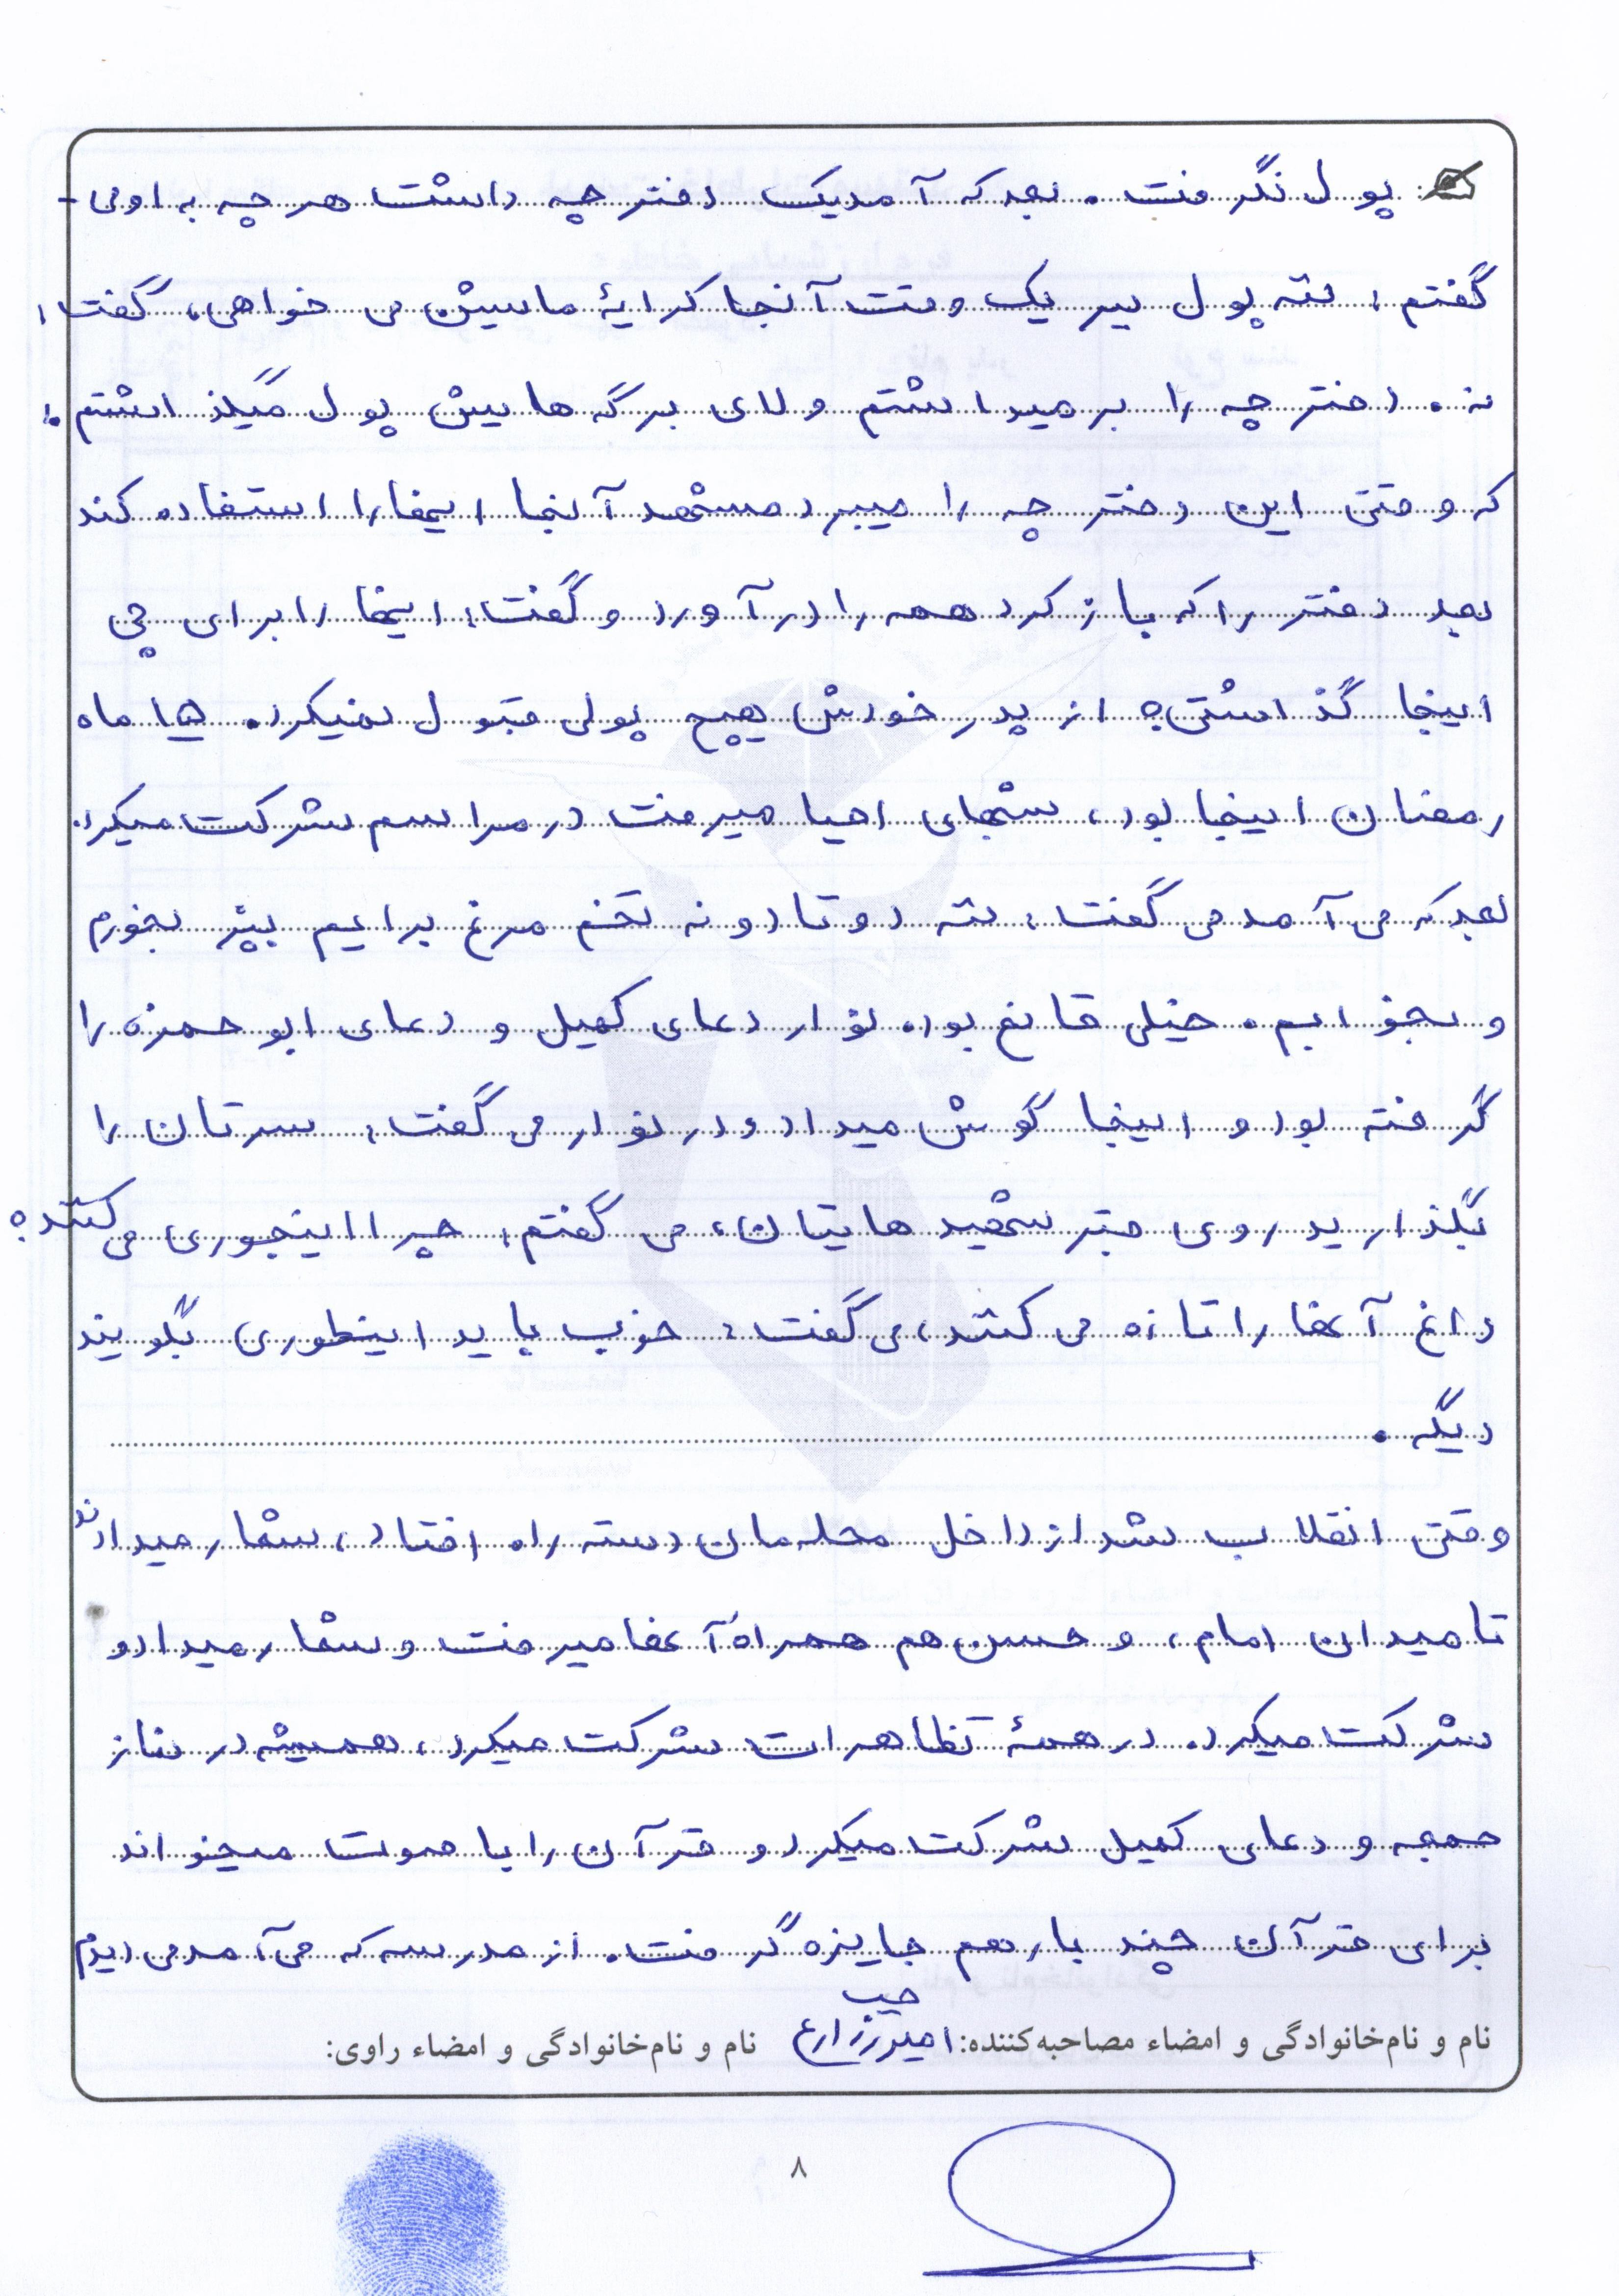 پول نگرفت. بعد که آمد یک دفترچه داشت هر چه به او می‌-
گفتم: ننه پول ببر یک وقت آنجا کرایهٔ ماشین می خواهی، گفت:
نه. دفترچه را بر میداشتم و لای برگه هایش پول میگذاشتم.
که وقتی این دفترچه را میبرد مشهد آنجا اینها را استفاده کند
بعد دفتر را که باز کرد همه را در آورد و گفت: اینها را برای چی
اینجا گذاشتی؟ از پدر خودش هیچ پولی قبول نمیکرد. ماه
رمضان اینجا بود، شبهای احیا میرفت در مراسم شرکت میکرد.
بعد که می آمد می گفت: ننه دو تا دونه تخم مرغ برایم بپز بخورم
و بخوابم. خیلی قانع بود. نوار دعای کمیل و دعای ابوحمزه را
گرفته بود و اینجا گوش میداد و در نوار می گفت: سرتان را
بگذارید روی قبر شهیدهایتان، می گفتم: چرا اینجوری می کنند؟
داغ آنها را تازه می کنند، می گفت: خوب باید اینطوری بگویند
دیگه.
وقتی انقلاب شد از داخل محله مان دسته راه افتاد، شعار میدادند
تا میدان امام، و حسن هم همراه آنها میرفت و شعار میداد و
شرکت میکرد. در همهٔ تظاهرات شرکت میکرد، همیشه در نماز
جمعه و دعای کمیل شرکت میکرد و قرآن را با صوت میخواند
برای قرآن چند بار هم جایزه گرفت. از مدرسه که می آمد می دیدم
نام و نام‌خانوادگی و امضاء مصاحبه‌کننده: نام و نام‌خانوادگی و امضاء راوی:
۸